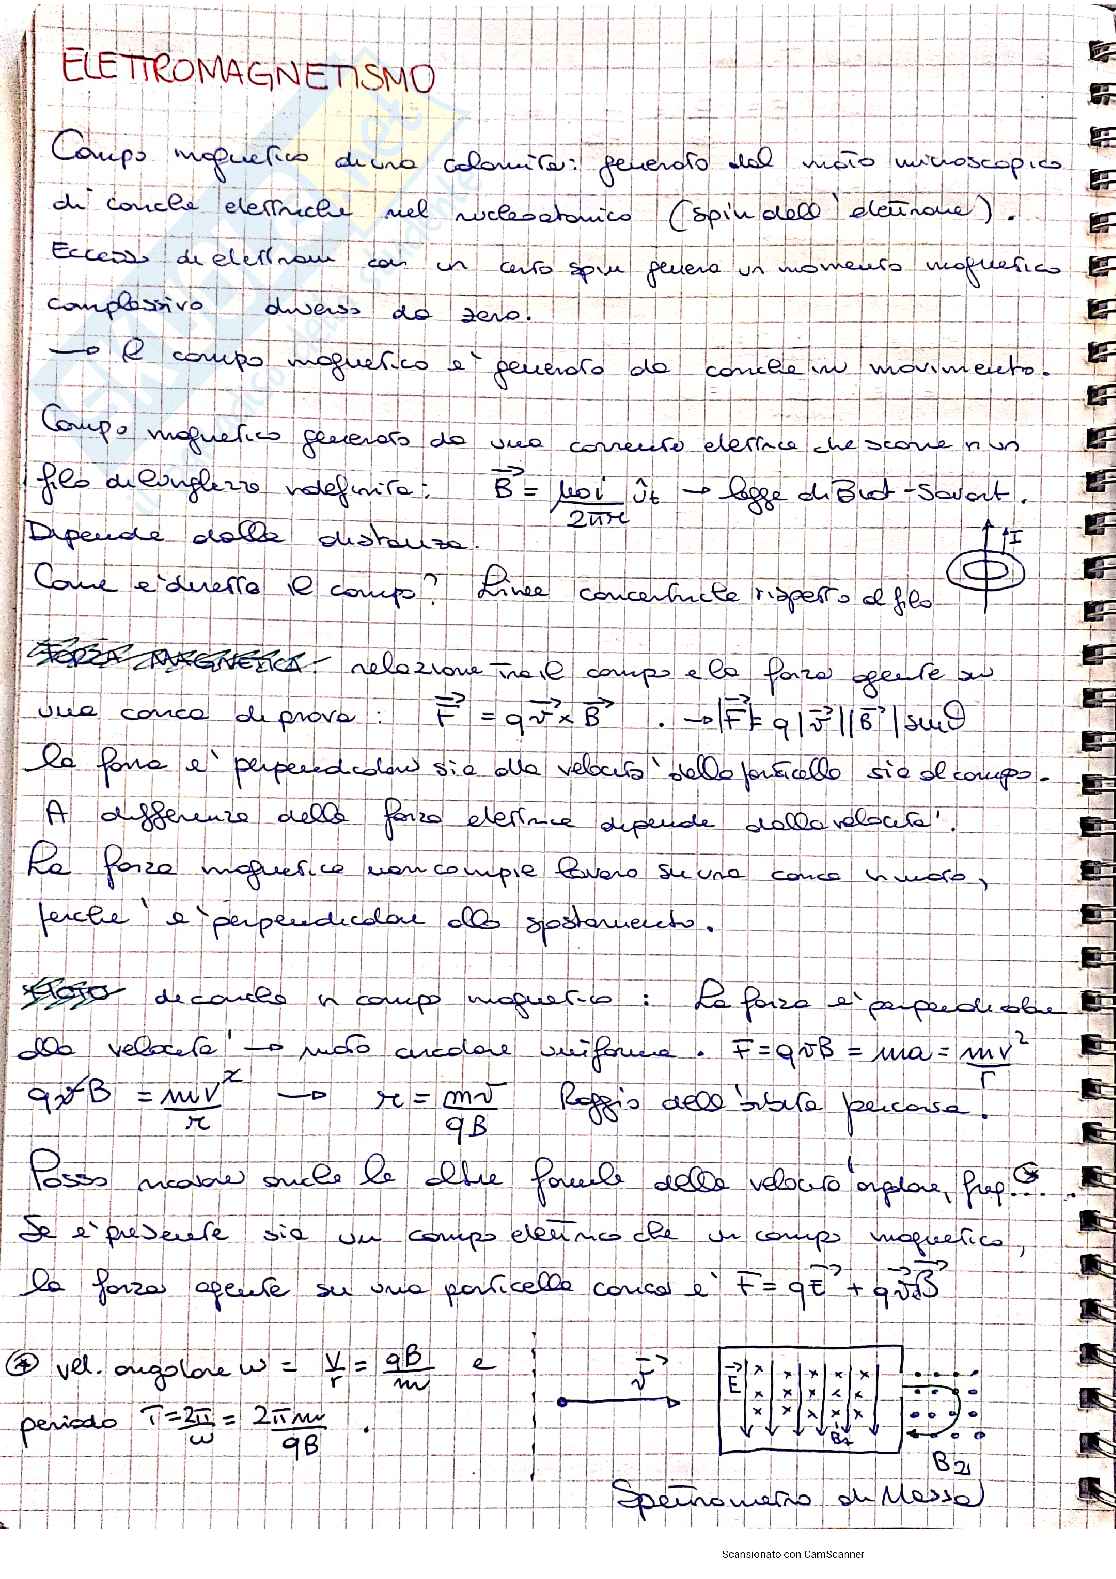 ELETTROMAGNETISMO
Campo magnetico di una calamita: generato dal moto microscopico
di cariche elettriche nel nucleo atomico (spin dell'elettrone).
Eccesso di elettroni con un certo spin genera un momento magnetico
complessivo diverso da zero.
→ Il campo magnetico è generato da cariche in movimento.
Campo magnetico generato da una corrente elettrica che scorre in un
filo di lunghezza indefinita: B = μ0i / 2πr ût → legge di Biot-Savart.
Dipende dalla distanza.
I
Come è diretto il campo? Linee concentriche rispetto al filo
FORZA MAGNETICA relazione tra il campo e la forza agente su
una carica di prova: F = qv × B . → |F| = q|v||B| sinθ
la forza è perpendicolare sia alla velocità della particella sia al campo.
A differenza della forza elettrica dipende dalla velocità.
La forza magnetica non compie lavoro su una carica in moto,
perché è perpendicolare allo spostamento.
MOTO di cariche in campo magnetico: La forza è perpendicolare
alla velocità → moto circolare uniforme. F = qvB = ma = mv²/r
qvB = mv²/r → r = mv/qB Raggio dell'orbita percorsa.
Posso ricavare anche le altre formule della velocità angolare, freq...
Se è presente sia un campo elettrico che un campo magnetico,
la forza agente su una particella carica è F = qE + qvB
* vel. angolare ω = v/r = qB/m e
periodo T = 2π/ω = 2πm/qB .
v
E
B1
B2
Spettrometro di Massa
Scansionato con CamScanner